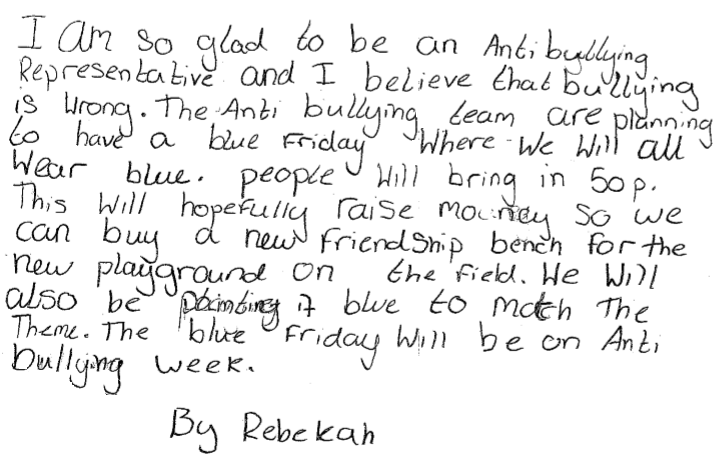 I am so glad to be an Anti bullying
Representative and I believe that bullying
is wrong. The Anti bullying team are planning
to have a blue Friday Where we will all
Wear blue. people will bring in 50p.
This will hopefully raise mouney so we
can buy a new friendship bench for the
new playground on the field. We will
also be painting it blue to match The
Theme. The blue Friday will be on Anti
bullying week.
By Rebekah